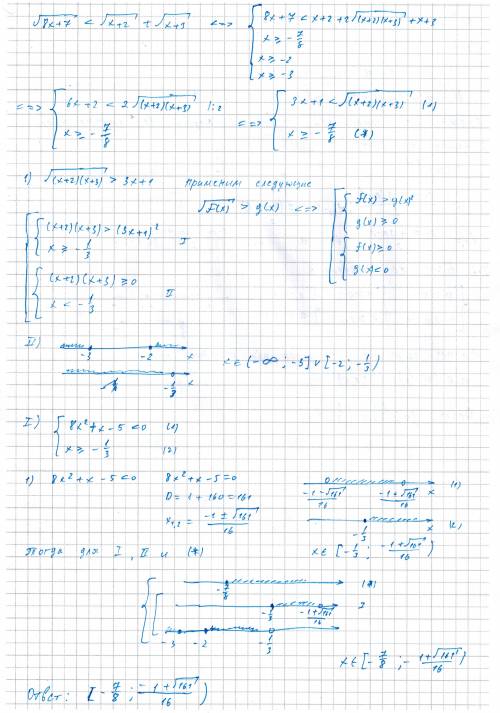 √(8x+7) < √(x+2) + √(x+3) <=> { 8x+7 < x+2+2√((x+2)(x+3)) + x+3
x ≥ -7/8
x ≥ -2
x ≥ -3
<=> { 6x+2 < 2√((x+2)(x+3)) |:2
x ≥ -7/8
<=> { 3x+1 < √((x+2)(x+3)) (1)
x ≥ -7/8 (*)
1) √((x+2)(x+3)) > 3x+1 применим следующие
√f(x) > g(x) <=> [ { f(x) > g(x)²
g(x) ≥ 0
{ f(x) ≥ 0
g(x) < 0
[ { (x+2)(x+3) > (3x+1)²
x ≥ -1/3 I
{ (x+2)(x+3) ≥ 0
x < -1/3 II
II) -3 -2 x
-1/3 x
x ∈ (-∞; -3] ∪ [-2; -1/3)
I) { 8x²+x-5 < 0 (1)
x ≥ -1/3 (2)
1) 8x²+x-5 < 0 8x²+x-5=0
D = 1+160=161
x₁,₂ = (-1±√161)/16
(-1-√161)/16 (-1+√161)/16 x (1)
-1/3 x (2)
x ∈ [-1/3; (-1+√161)/16)
Тогда для I, II и (*)
-7/8 (*)
-1/3 (-1+√161)/16 I
-3 -2 -1/3
x ∈ [-7/8; -(1+√161)/16)
Ответ: [-7/8; (-1+√161)/16)